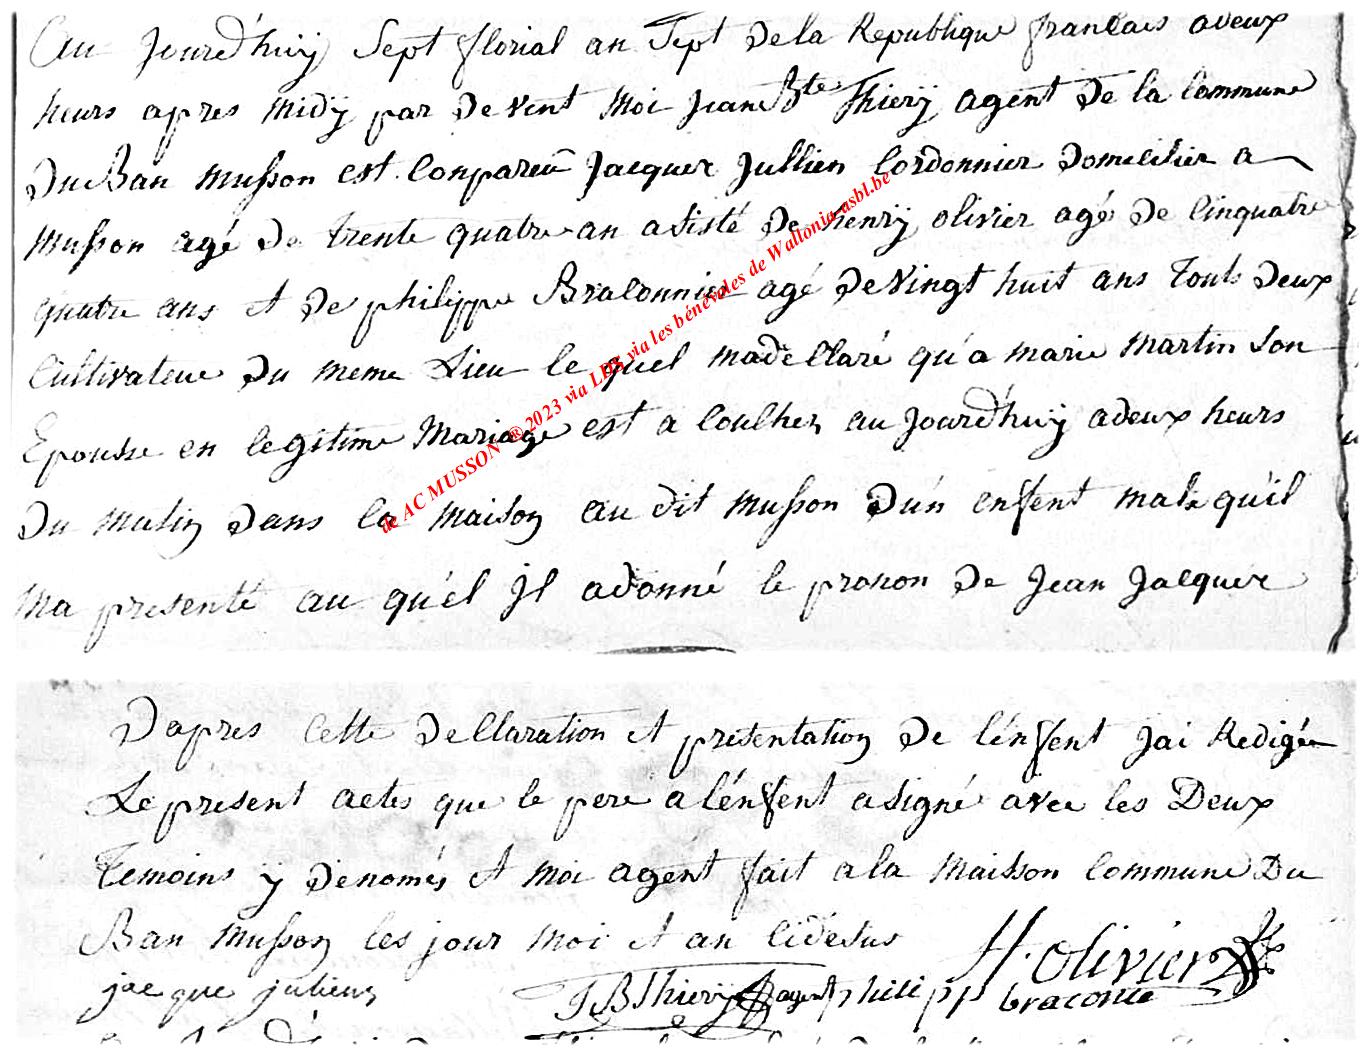 Au Jourd'huij Sept florial an Sept de la Republique francaes adeux
heurs apres midij par devent moi Jean Bte Thierij agent de la commune
du Ban Musson est conpareü Jacquer Jullien Cordonnier domicilier a
Musson agé de trente quatre an asisté de henrij olivier agés de cinquatre
quatre ans et de philippe Braconnier agé de vingt huit ans touts deux
cultivateur du meme Lieu le quel madecllaré qu'a marie Martin son
Epousse en legitime Mariage est a coulhez au Jourd'huij adeux heurs
du matin dans la maison au dit Musson d'un enfent malle qu'il
ma presenté au qu'el Jl adonné le pronon de Jean Jacquer
de AC MUSSON ® 2023 via LDB via les bénévoles de Wallonia-asbl.be
Dapres cette decllaration et presentation de l'énfent Jai Redigée
Le present actes que le pere a lénfent asigné avec les Deux
Temoins y denomés et moi agent fait a la Maisson commune Du
Ban Musson les jour moi et an cidesus
H. Olivier
jacque juliens JB Thierij agent philipp braconie